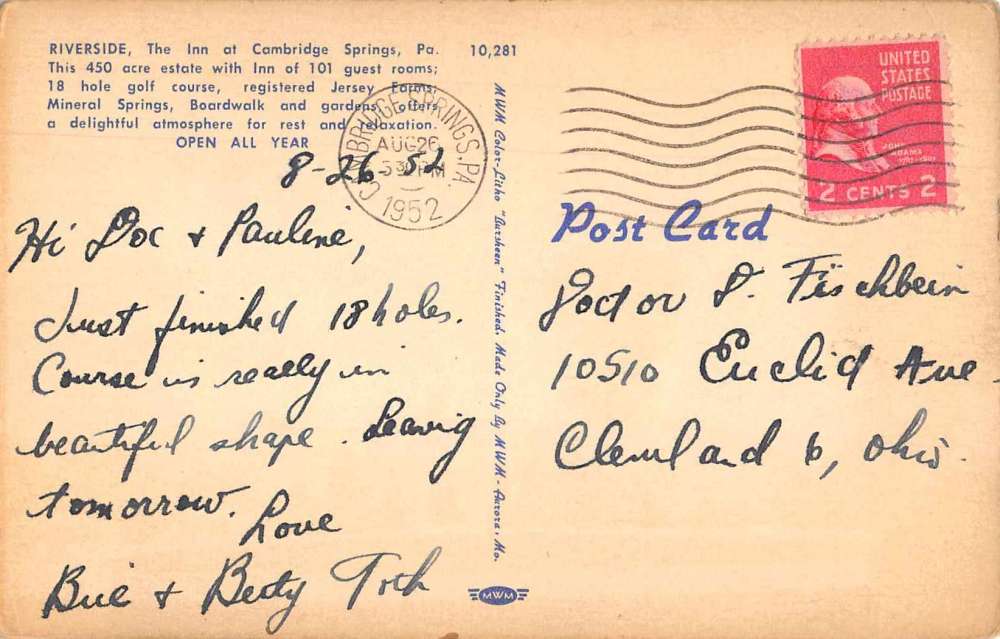 RIVERSIDE, The Inn at Cambridge Springs, Pa. 10,281
This 450 acre estate with Inn of 101 guest rooms;
18 hole golf course, registered Jersey Farms,
Mineral Springs, Boardwalk and gardens, offers
a delightful atmosphere for rest and relaxation.
OPEN ALL YEAR
8-26 52
Hi Doc + Pauline,
Just finished 18 holes.
Course is really in
beautiful shape. Leaving
tomorrow.
Love
Bill + Betty Toth
MWM Color-Litho "Aursheen" Finished. Made Only By MWM - Aurora, Mo.
MWM
CAMBRIDGE SPRINGS, PA.
AUG 26
530 PM
1952
UNITED
STATES
POSTAGE
JOHN
ADAMS
2 CENTS 2
Post Card
Doctor D. Fischbein
10510 Euclid Ave
Cleveland 6, Ohio.